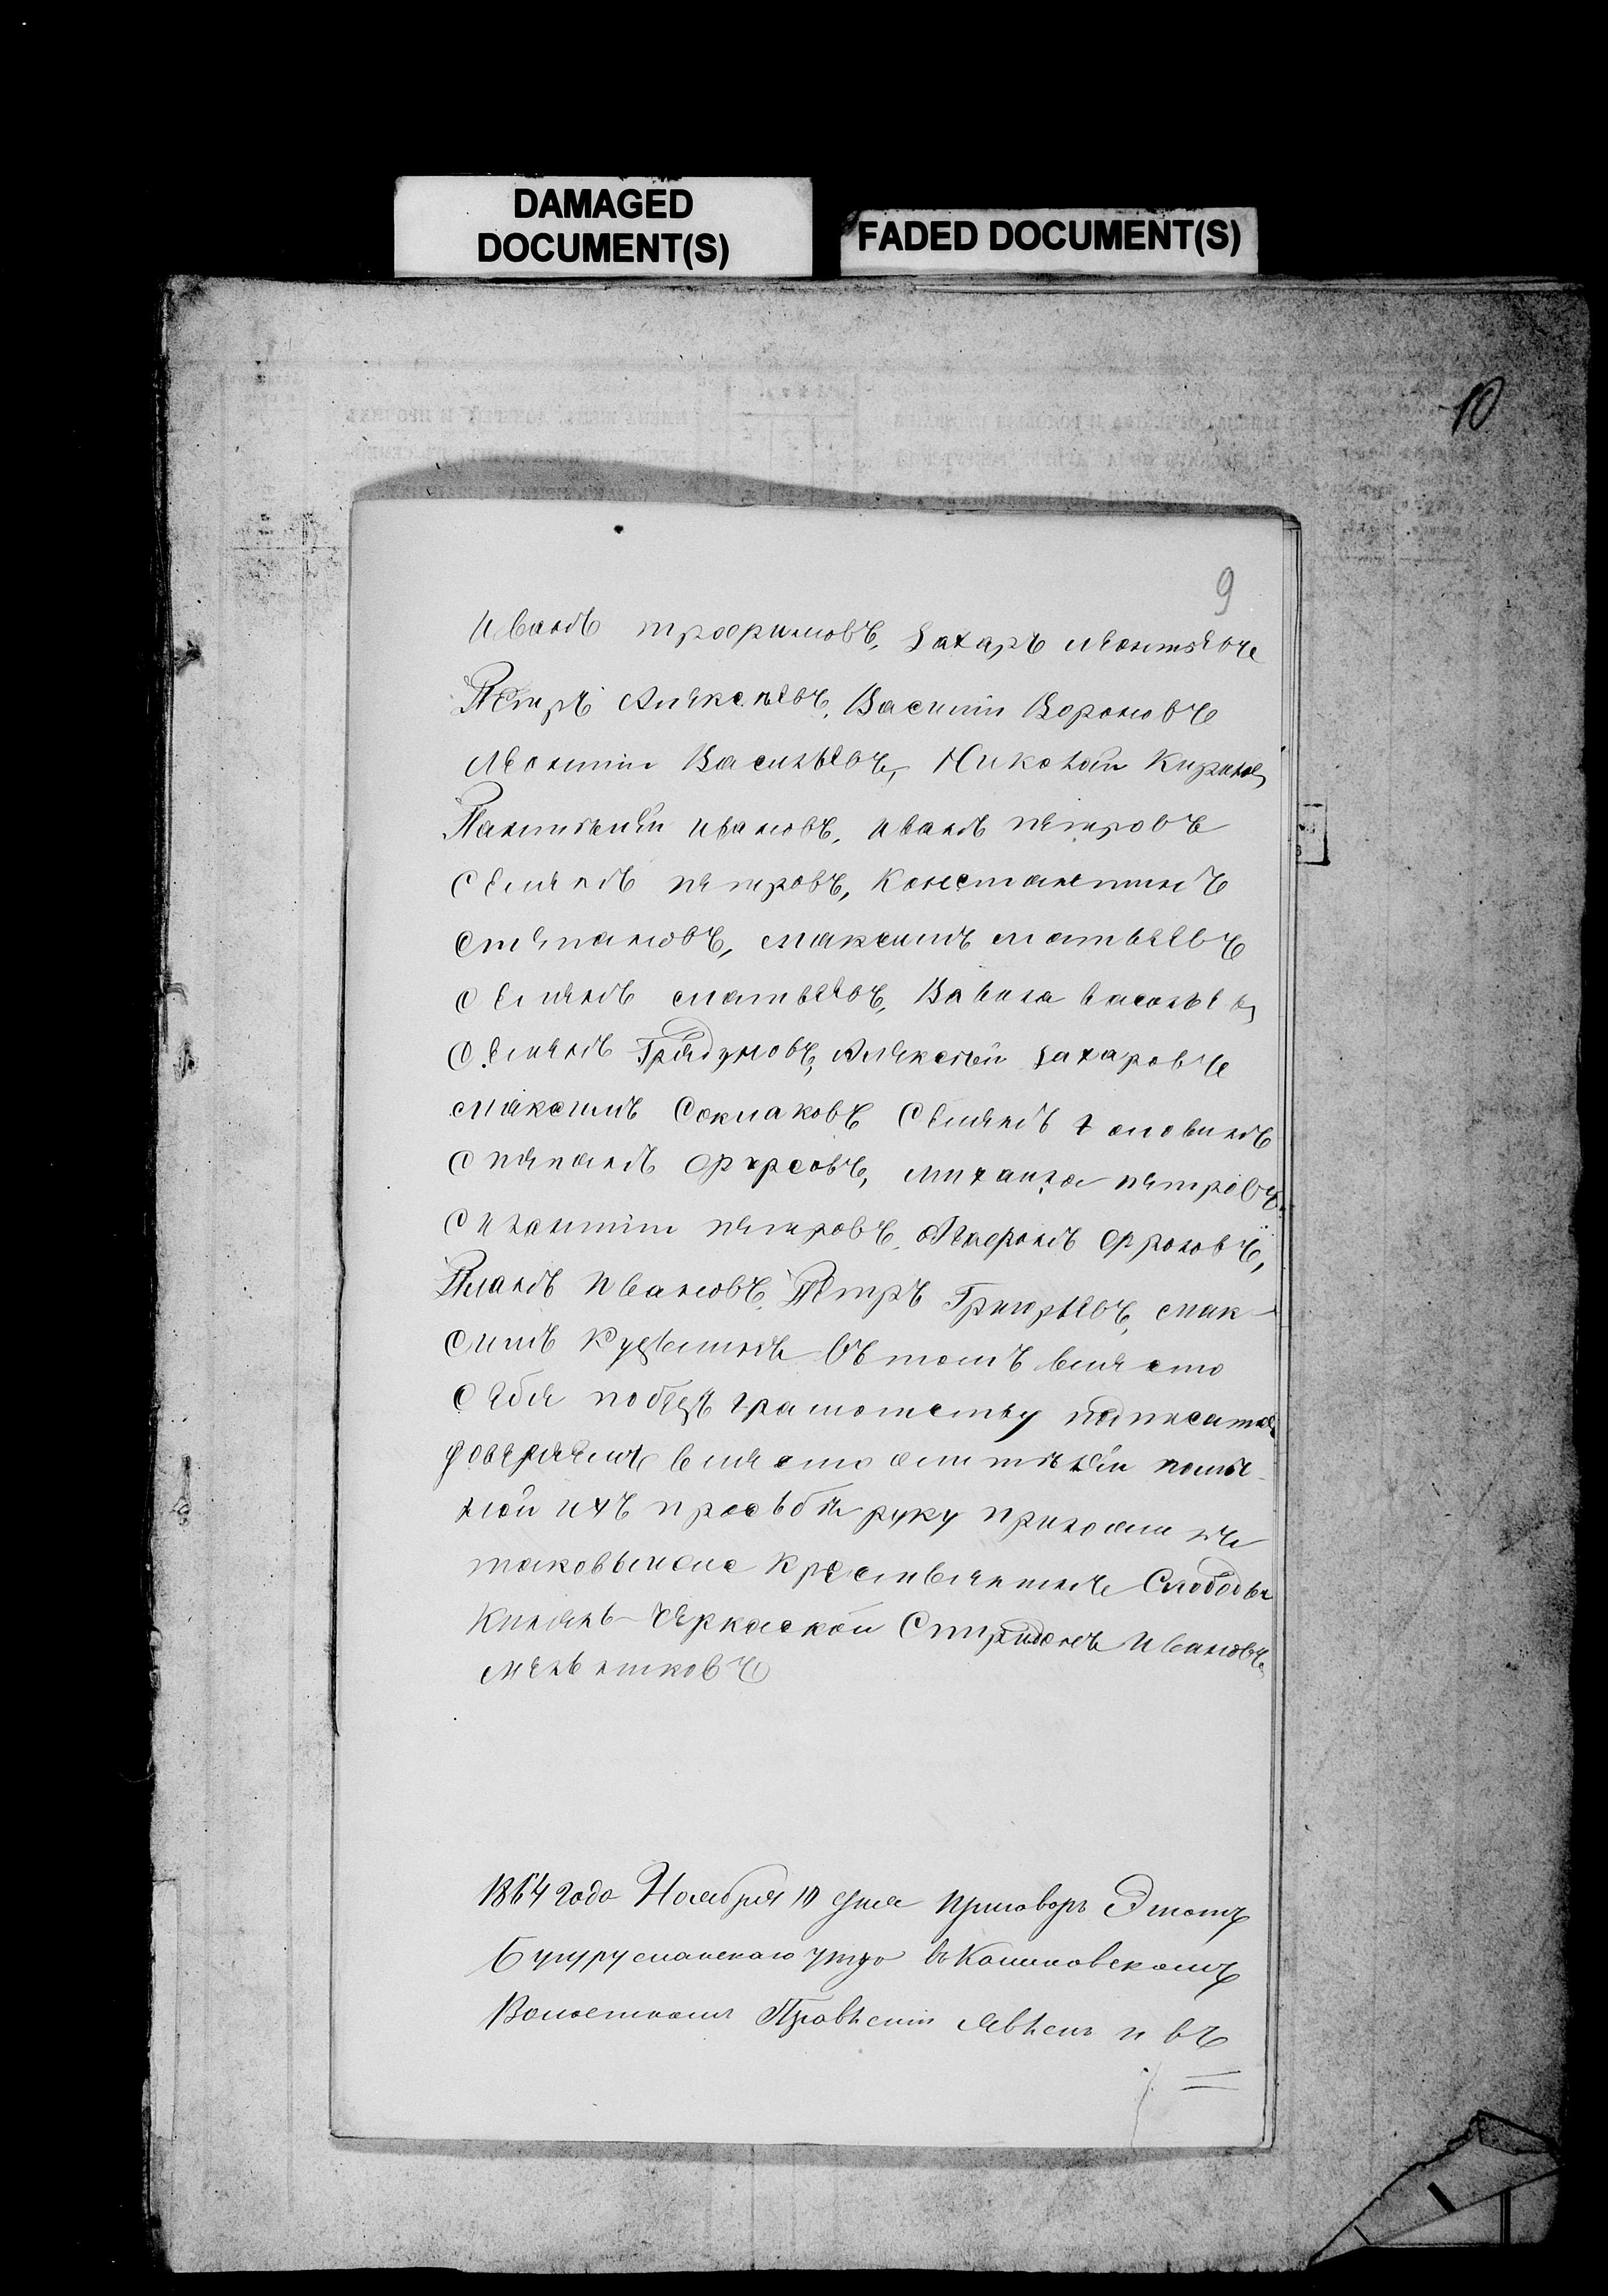 DAMAGED
DOCUMENT(S)
FADED DOCUMENT(S)
10
9
Иванъ трофимовъ, Захаръ леонтьевъ
Петръ Алексѣевъ, Василiи Вороновъ
Леонтiи Васильевъ, Николай Кирилов
Пантилѣй ивановъ, иванъ петровъ
Семенъ петровъ, Константинъ
степановъ, максимъ матвѣевъ
Семенъ матвѣевъ, Вавила васильев
Семенъ Грядуновъ, Алексѣй Захаровъ
максимъ Сокмаковъ Семенъ головинъ
Степанъ Фирсовъ, михаила петровъ
силантiи петровъ, Агафонъ Фроловъ,
Планъ Ивановъ, Петръ Григорьевъ, мак-
симъ Кузьминъ Въ томъ вместо
себя грамотству подписатся
доверяемъ вместо
ихъ прозьбѣ руку приложилъ
таковыйже Крестьянинъ Слободы
Князь-Черкаской Спиридонъ Ивановъ
мельниковъ
1864 года Ноября 10 дня приговоръ Этотъ
Бугурусланскаго уезда въ
Волостномъ Правленiи Явленъ и въ